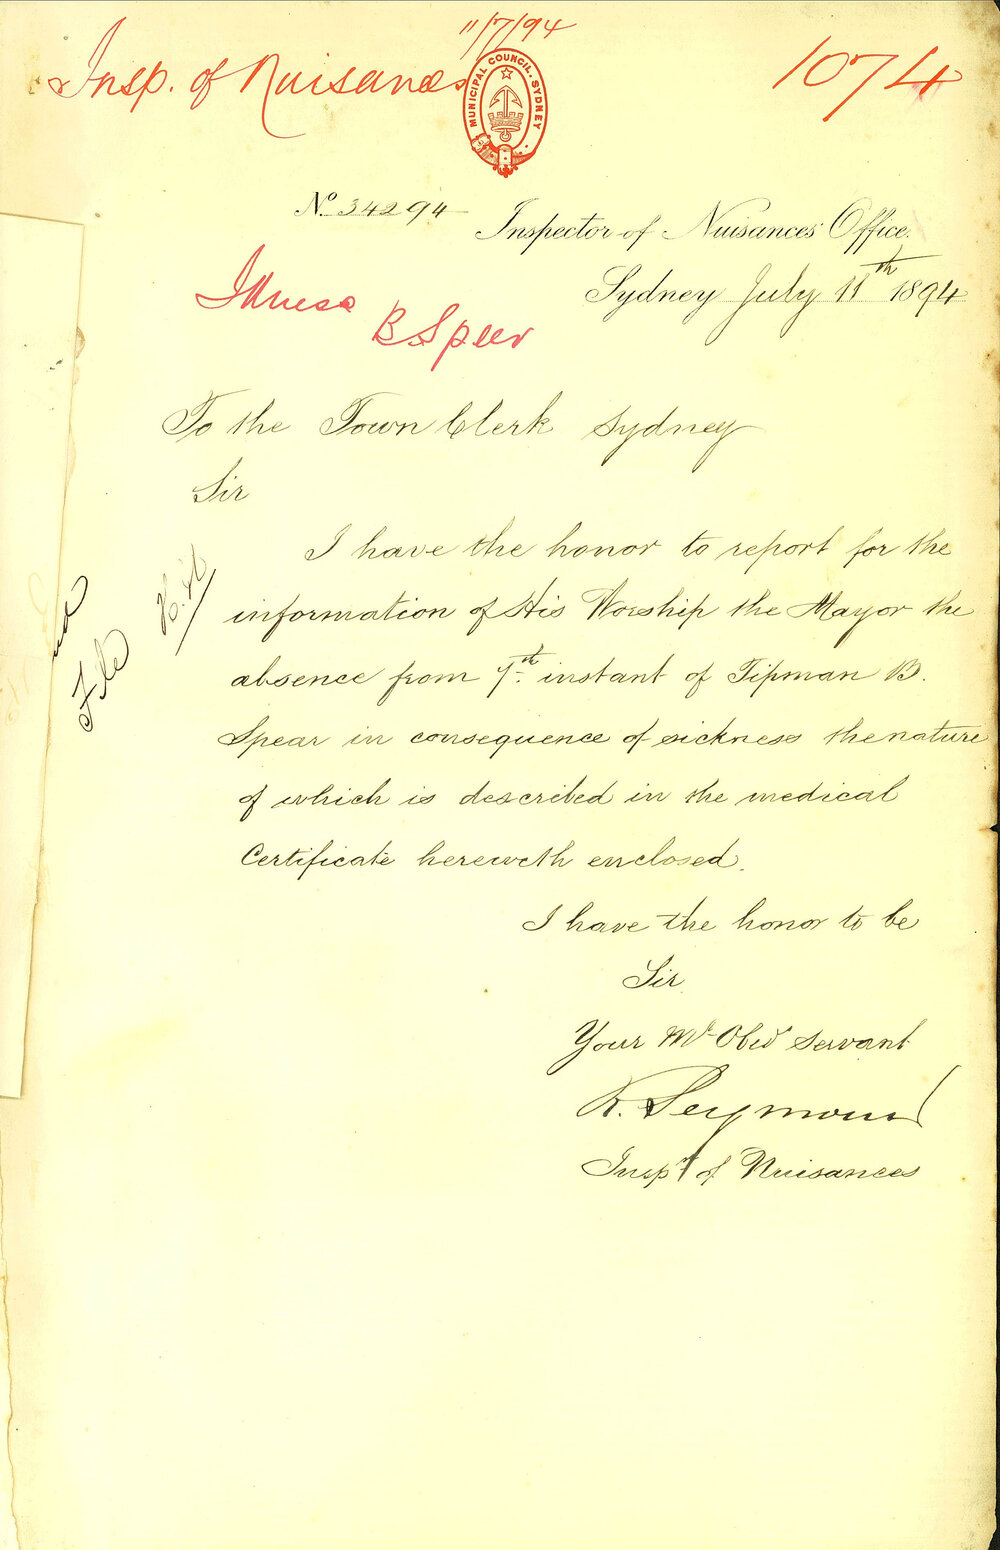 11/7/94
Insp. of Nuisances
1074
MUNICIPAL COUNCIL. SYDNEY
No. 342 94
Inspector of Nuisances Office.
Sydney July 11th 1894
Illness
B Speer
To the Town Clerk Sydney
Sir
I have the honor to report for the
information of His Worship the Mayor the
absence from 7th instant of Tipman B.
Spear in consequence of sickness the nature
of which is described in the medical
Certificate herewith enclosed.
I have the honor to be
Sir
Your Mt Obed Servant
R. Seymour
Inspr of Nuisances
File